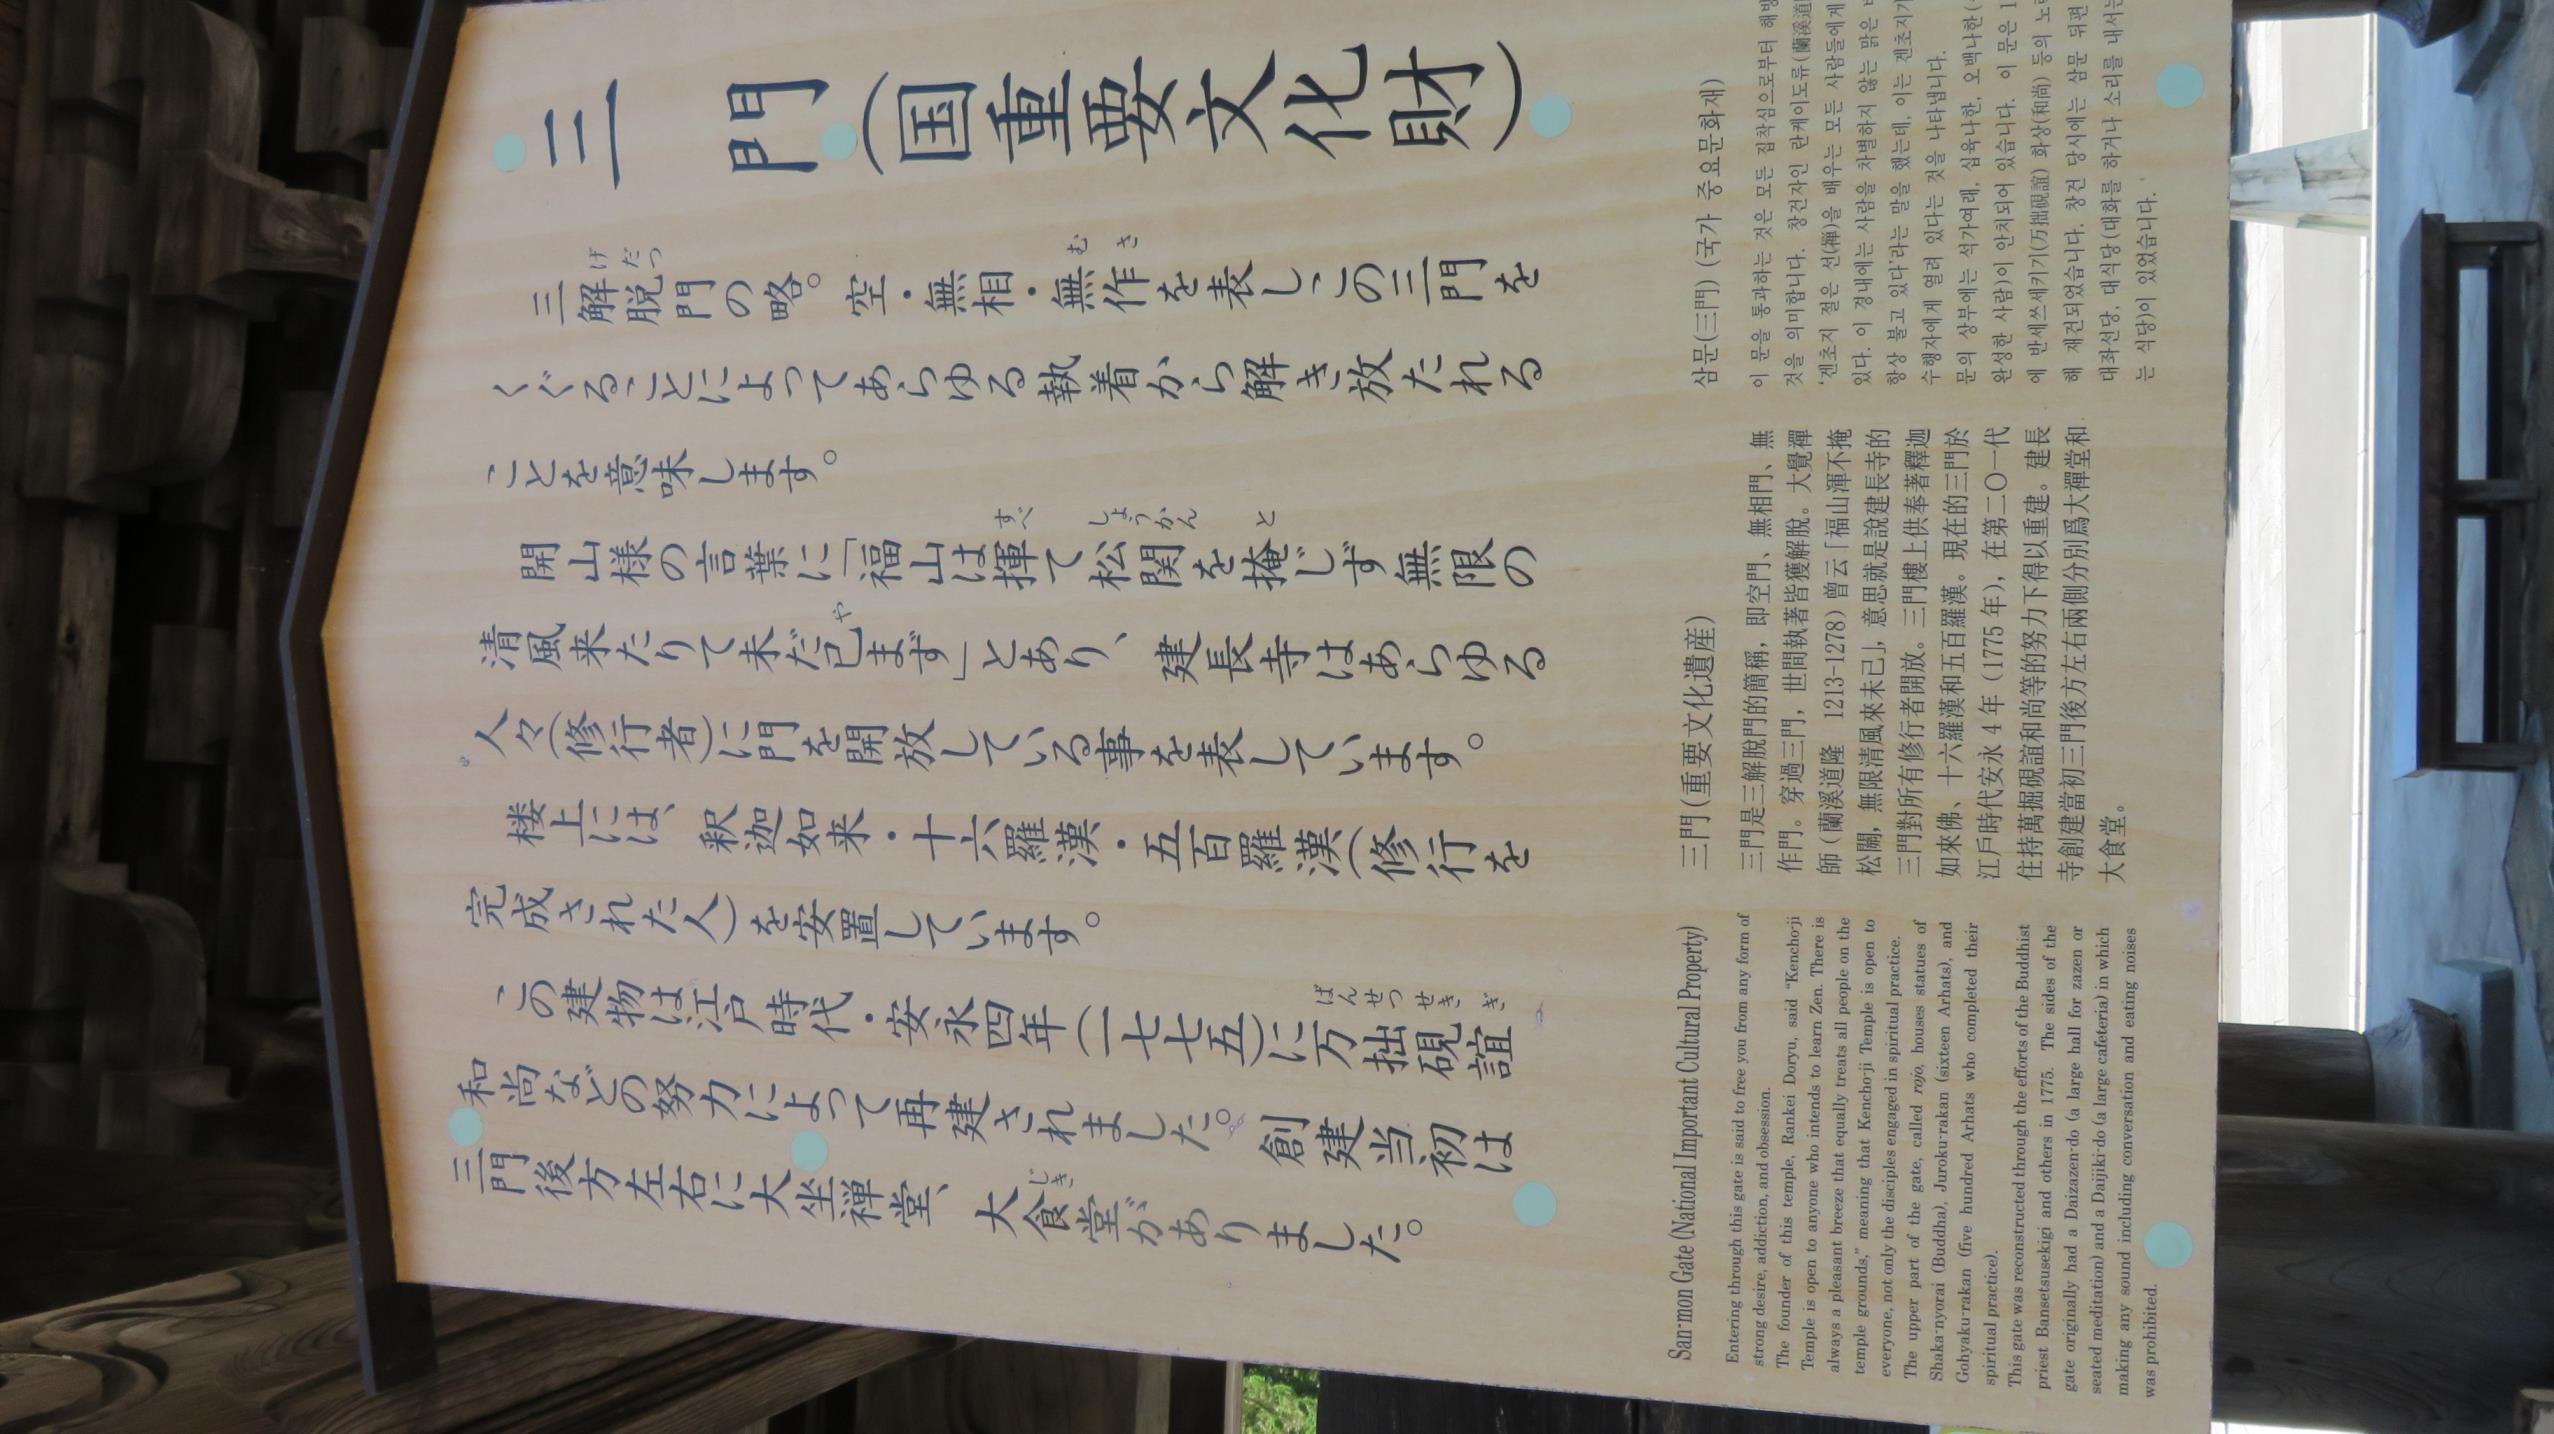 三門(国重要文化財)
三解脱門の略。空・無相・無作を表し、この三門を
げだつ
むさ
くぐることによってあらゆる執着から解き放たれる
ことを意味します。
開山様の言葉に「福山は揮て松関を掩じず無限の
すべ
しょうかん
と
清風来たりて未だ已まず」とあり、建長寺はあらゆる
や
人々(修行者)に門を開放している事を表しています。
楼上には、釈迦如来・十六羅漢・五百羅漢(修行を
完成された人)を安置しています。
この建物は江戸時代・安永四年(一七七五)に万拙硯誼
ばんせつせきぎ
和尚などの努力によって再建されました。創建当初は
三門後方左右に大坐禅堂、大食堂がありました。
じき
San-mon Gate (National Important Cultural Property)
Entering through this gate is said to free you from any form of
strong desire, addiction, and obsession.
The founder of this temple, Rankei Doryu, said "Kencho-ji
Temple is open to anyone who intends to learn Zen. There is
always a pleasant breeze that equally treats all people on the
temple grounds," meaning that Kencho-ji Temple is open to
everyone, not only the disciples engaged in spiritual practice.
The upper part of the gate, called rojo, houses statues of
Shaka-nyorai (Buddha), Juroku-rakan (sixteen Arhats), and
Gohyaku-rakan (five hundred Arhats who completed their
spiritual practice).
This gate was reconstructed through the efforts of the Buddhist
priest Bansetsusekigi and others in 1775. The sides of the
gate originally had a Daizazen-do (a large hall for zazen or
seated meditation) and a Daijiki-do (a large cafeteria) in which
making any sound including conversation and eating noises
was prohibited.
三門(重要文化遺産)
三門是三解脫門的簡稱，即空門、無相門、無
作門。穿過三門，世間執著皆獲解脫。大覺禪
師(蘭溪道隆 1213-1278)曾云「福山渾不掩
松關，無限清風來未已」，意思就是說建長寺的
三門對所有修行者開放。三門樓上供奉著釋迦
如來佛、十六羅漢和五百羅漢。現在的三門於
江戶時代安永4年(1775年)，在第二〇一代
住持萬掘硯誼和尚等的努力下得以重建。建長
寺創建當初三門後方左右兩側分別爲大禪堂和
大食堂。
삼문(三門) (국가 중요문화재)
이 문을 통과하는 것은 모든 집착심으로부터 해방
것을 의미합니다. 창건자인 란케이도류(蘭溪道
'겐초지 절은 선(禪)을 배우는 모든 사람들에게
있다. 이 경내에는 사람을 차별하지 않는 맑은
항상 불고 있다'라는 말을 했는데, 이는 겐초지가
수행자에게 열려 있다는 것을 나타냅니다.
문의 상부에는 석가여래, 십육나한, 오백나한(
완성한 사람)이 안치되어 있습니다. 이 문은 1
에 반세쓰세키기(万拙硯誼) 화상(和尚) 등의 노
해 재건되었습니다. 창건 당시에는 삼문 뒤편
대좌선당, 대식당(대화를 하거나 소리를 내서는
는 식당)이 있었습니다.